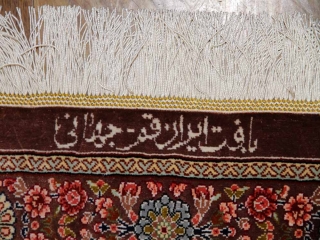 بافت ایران قم - جهانی